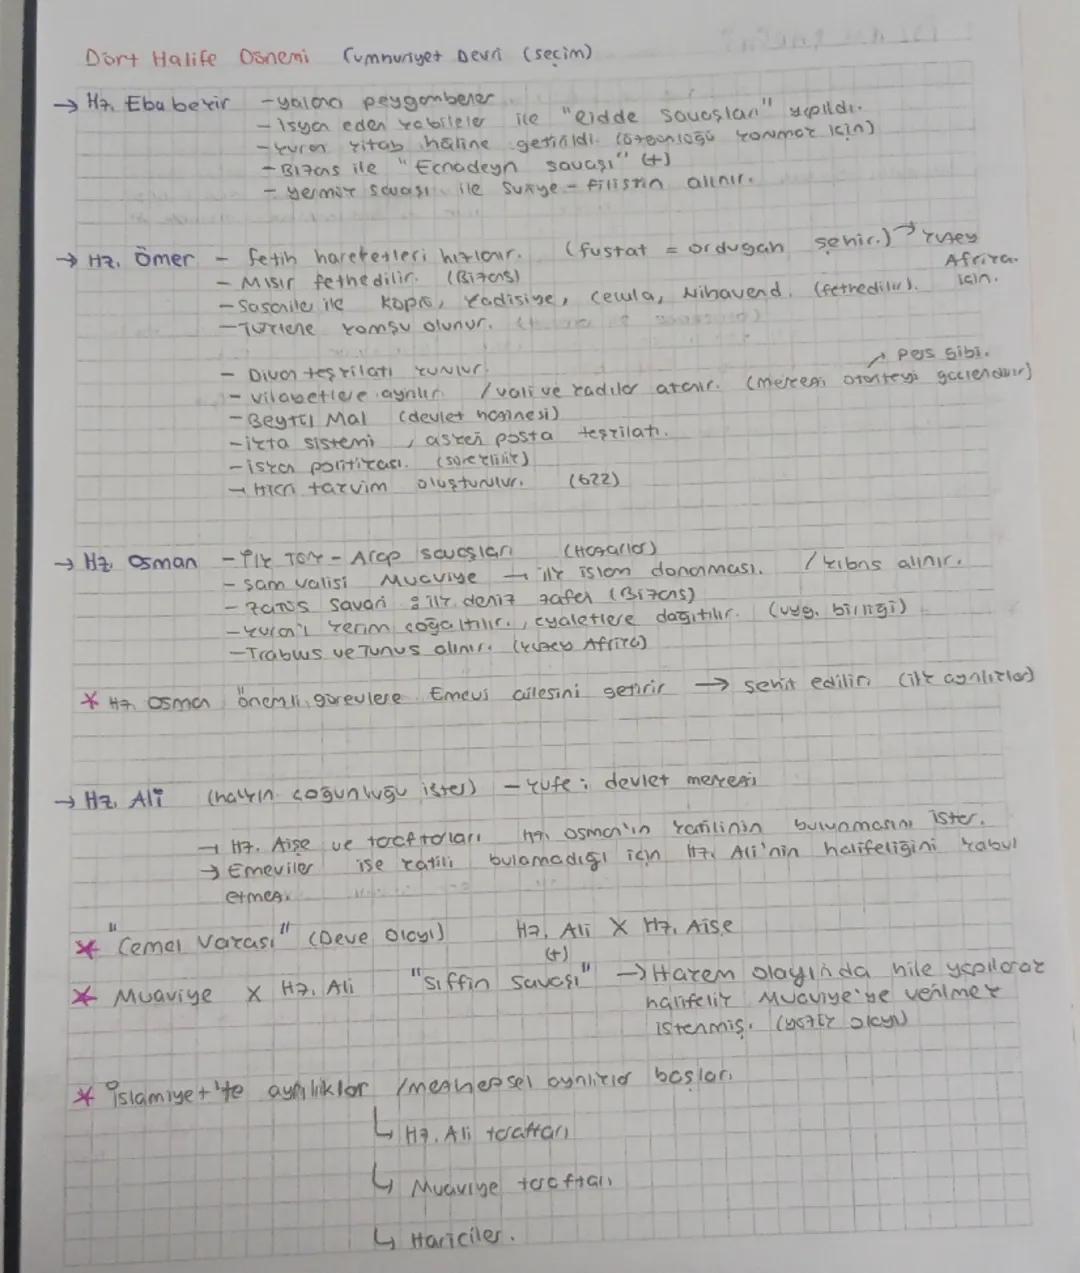 Dört Halife Dönemi Cumhuriyet Devri (seçim)
→ Hz. Ebubekir - yalancı peygamberler
- İsyan eden kabileler ile "Ridde savaşları" yapıldı.
- Kuran kitap haline getirildi. (özgünlüğü korumak için)
- Bizans ile "Ecnadeyn savaşı" (+)
- Yermük savaşı ile Suriye - Filistin alınır.
→ Hz. Ömer - fetih hareketleri hızlanır. (fustat = ordugah şehir.) → Kuzey Afrika için.
- Mısır fethedilir. (Bizans)
- Sasanile ile Köprü, Kadisiye, Celula, Nihavend. (fethedilir).
- Türklere komşu olunur.
- Divan teşkilatı kurulur.
- vilayetlere ayrılır / vali ve kadılar atanır. (merkezi otoriteyi güçlendirir) ↗ pers gibi.
- Beytül Mal (devlet hazinesi)
- ikta sistemi, askeri posta teşkilatı.
- iskan politikası. (süreklilik)
→ Hicri takvim oluşturulur. (622)
→ Hz. Osman - İlk Türk - Arap savaşları (Hazarlar)
- Şam valisi Muaviye → ilk islam donanması. / Kıbrıs alınır.
- Zatüs Savari : ilk deniz zaferi (Bizans)
- Kuran'ı Kerim çoğaltılır, eyaletlere dağıtılır. (uyg. birliği)
- Trablus ve Tunus alınır. (Kuzey Afrika)
* Hz. Osman önemli görevlere Emevi ailesini getirir → şehit edilir. (ilk ayrılıklar)
→ Hz. Ali (halkın çoğunluğu ister) - Kufe : devlet merkezi
→ Hz. Aişe ve taraftarları Hz. Osman'ın katilinin bulunmasını ister.
→ Emeviler ise katili bulamadığı için Hz. Ali'nin halifeliğini kabul
etmez.
* "Cemel Vakası" (Deve Olayı) Hz. Ali X Hz. Aişe
(+)
* Muaviye X Hz. Ali "Sıffin Savaşı" → Hakem olayında hile yapılarak
halifelik Muaviye'ye verilmek
istenmiş. (yazık olayı)
* İslamiyet'te ayrılıklar / mezhepsel ayrılıklar başlar.
↳ Hz. Ali taraftarı
↳ Muaviye taraftarı
↳ Hariciler.